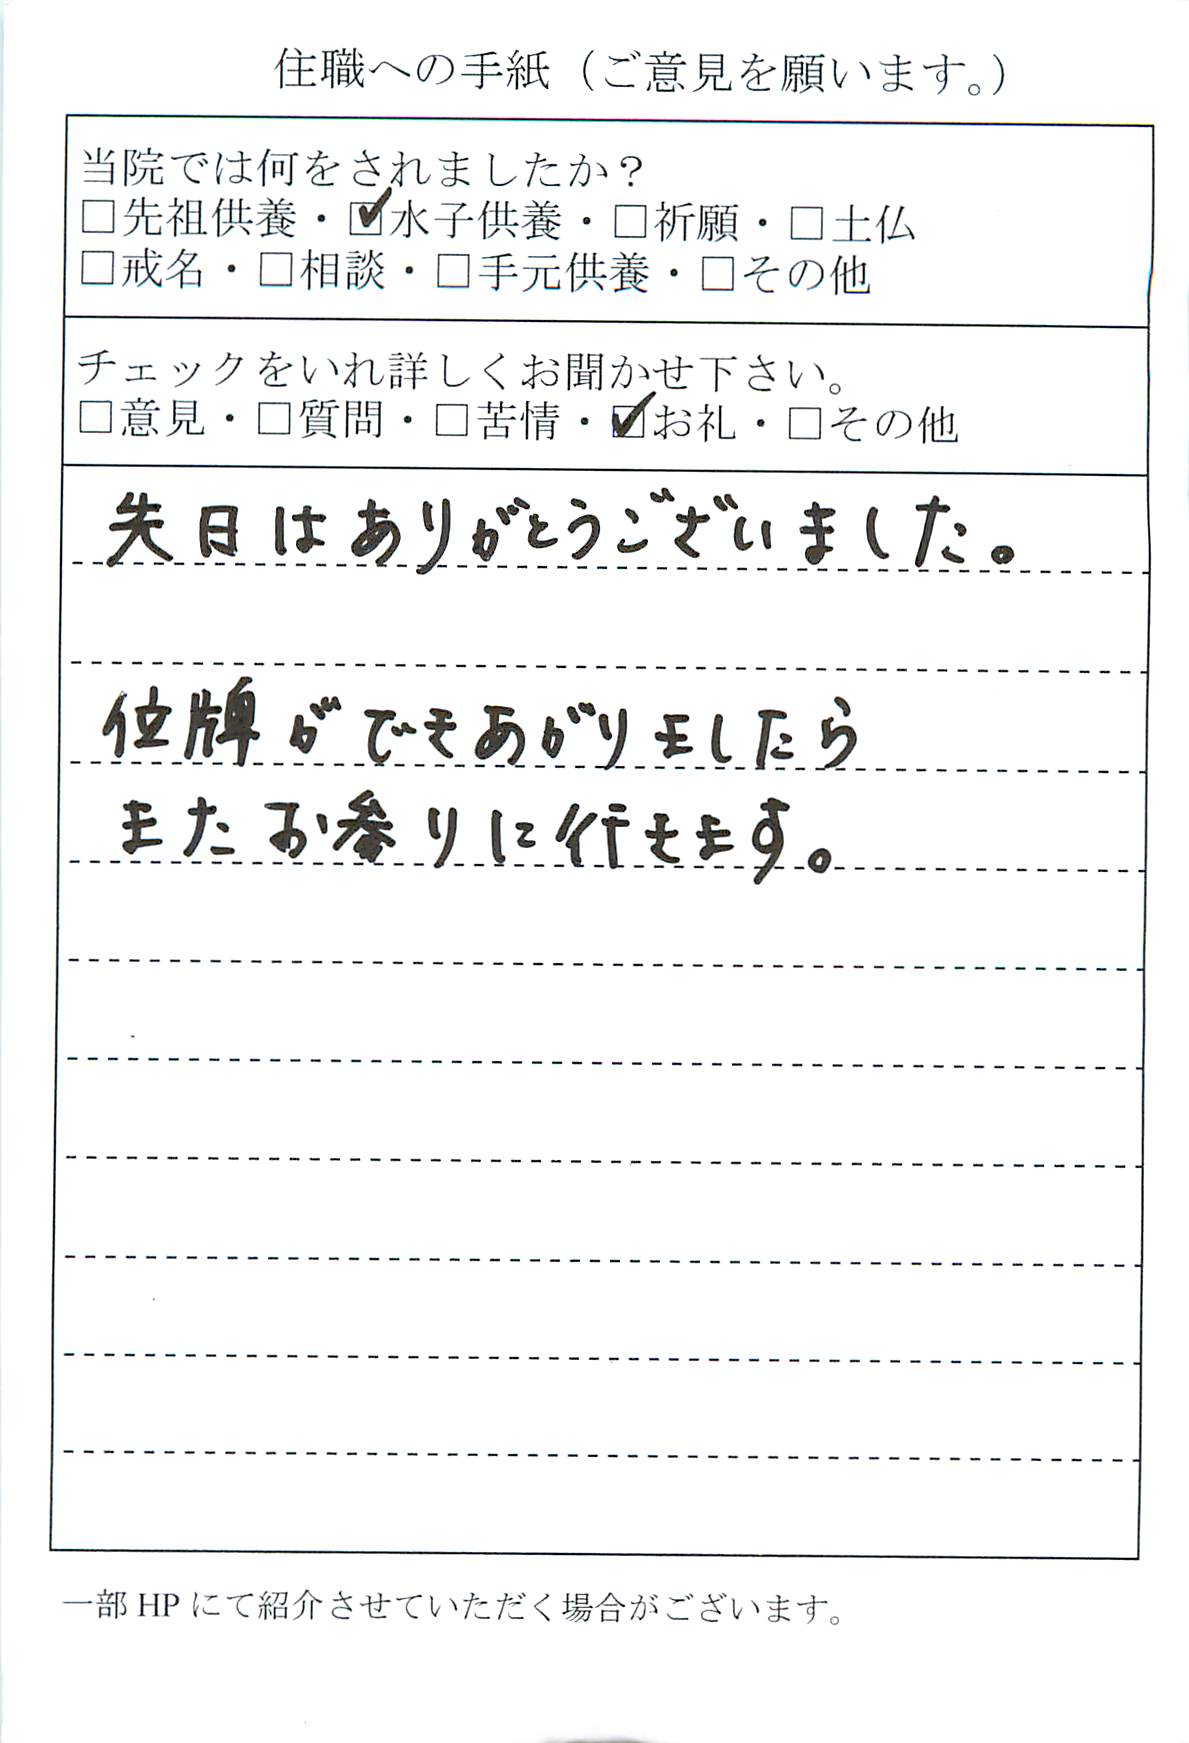 住職への手紙（ご意見を願います。）
当院では何をされましたか？
□先祖供養・☑水子供養・□祈願・□土仏
□戒名・□相談・□手元供養・□その他
チェックをいれ詳しくお聞かせ下さい。
□意見・□質問・□苦情・☑お礼・□その他
先日はありがとうございました。
位牌ができあがりましたら
またお参りに行きます。
一部 HP にて紹介させていただく場合がございます。